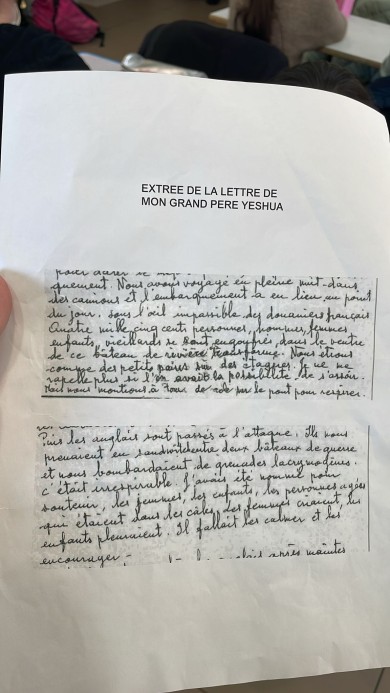 EXTREE DE LA LETTRE DE
MON GRAND PERE YESHUA
pour
quement. Nous avons voyagé en pleine nuit dans
des camions et l'embarquement a eu lieu au point
du jour. Sous l'œil impassible des douaniers français
Quatre mille cinq cents personnes, hommes, femmes
enfants, vieillards se sont engouffrés dans le ventre
de ce bâteau de rivière transformé. Nous étions
comme des petits pains sur des étagères. Je ne me
rappelle plus si l'on avait la possibilité de s'asseoir.
Mais nous montions à tour de rôle sur le pont pour respirer.
Puis les anglais sont passés à l'attaque. Ils nous
prenaient en sandwich entre deux bâteaux de guerre
et nous bombardaient de grenades lacrymogènes.
C'était irrespirable. J'avais été nommé pour
soutenir, les femmes, les enfants, les personnes agées
qui étaient dans les câles, les femmes criaient, les
enfants pleuraient. Il fallait les calmer et les
encourager -
anglais après maintes